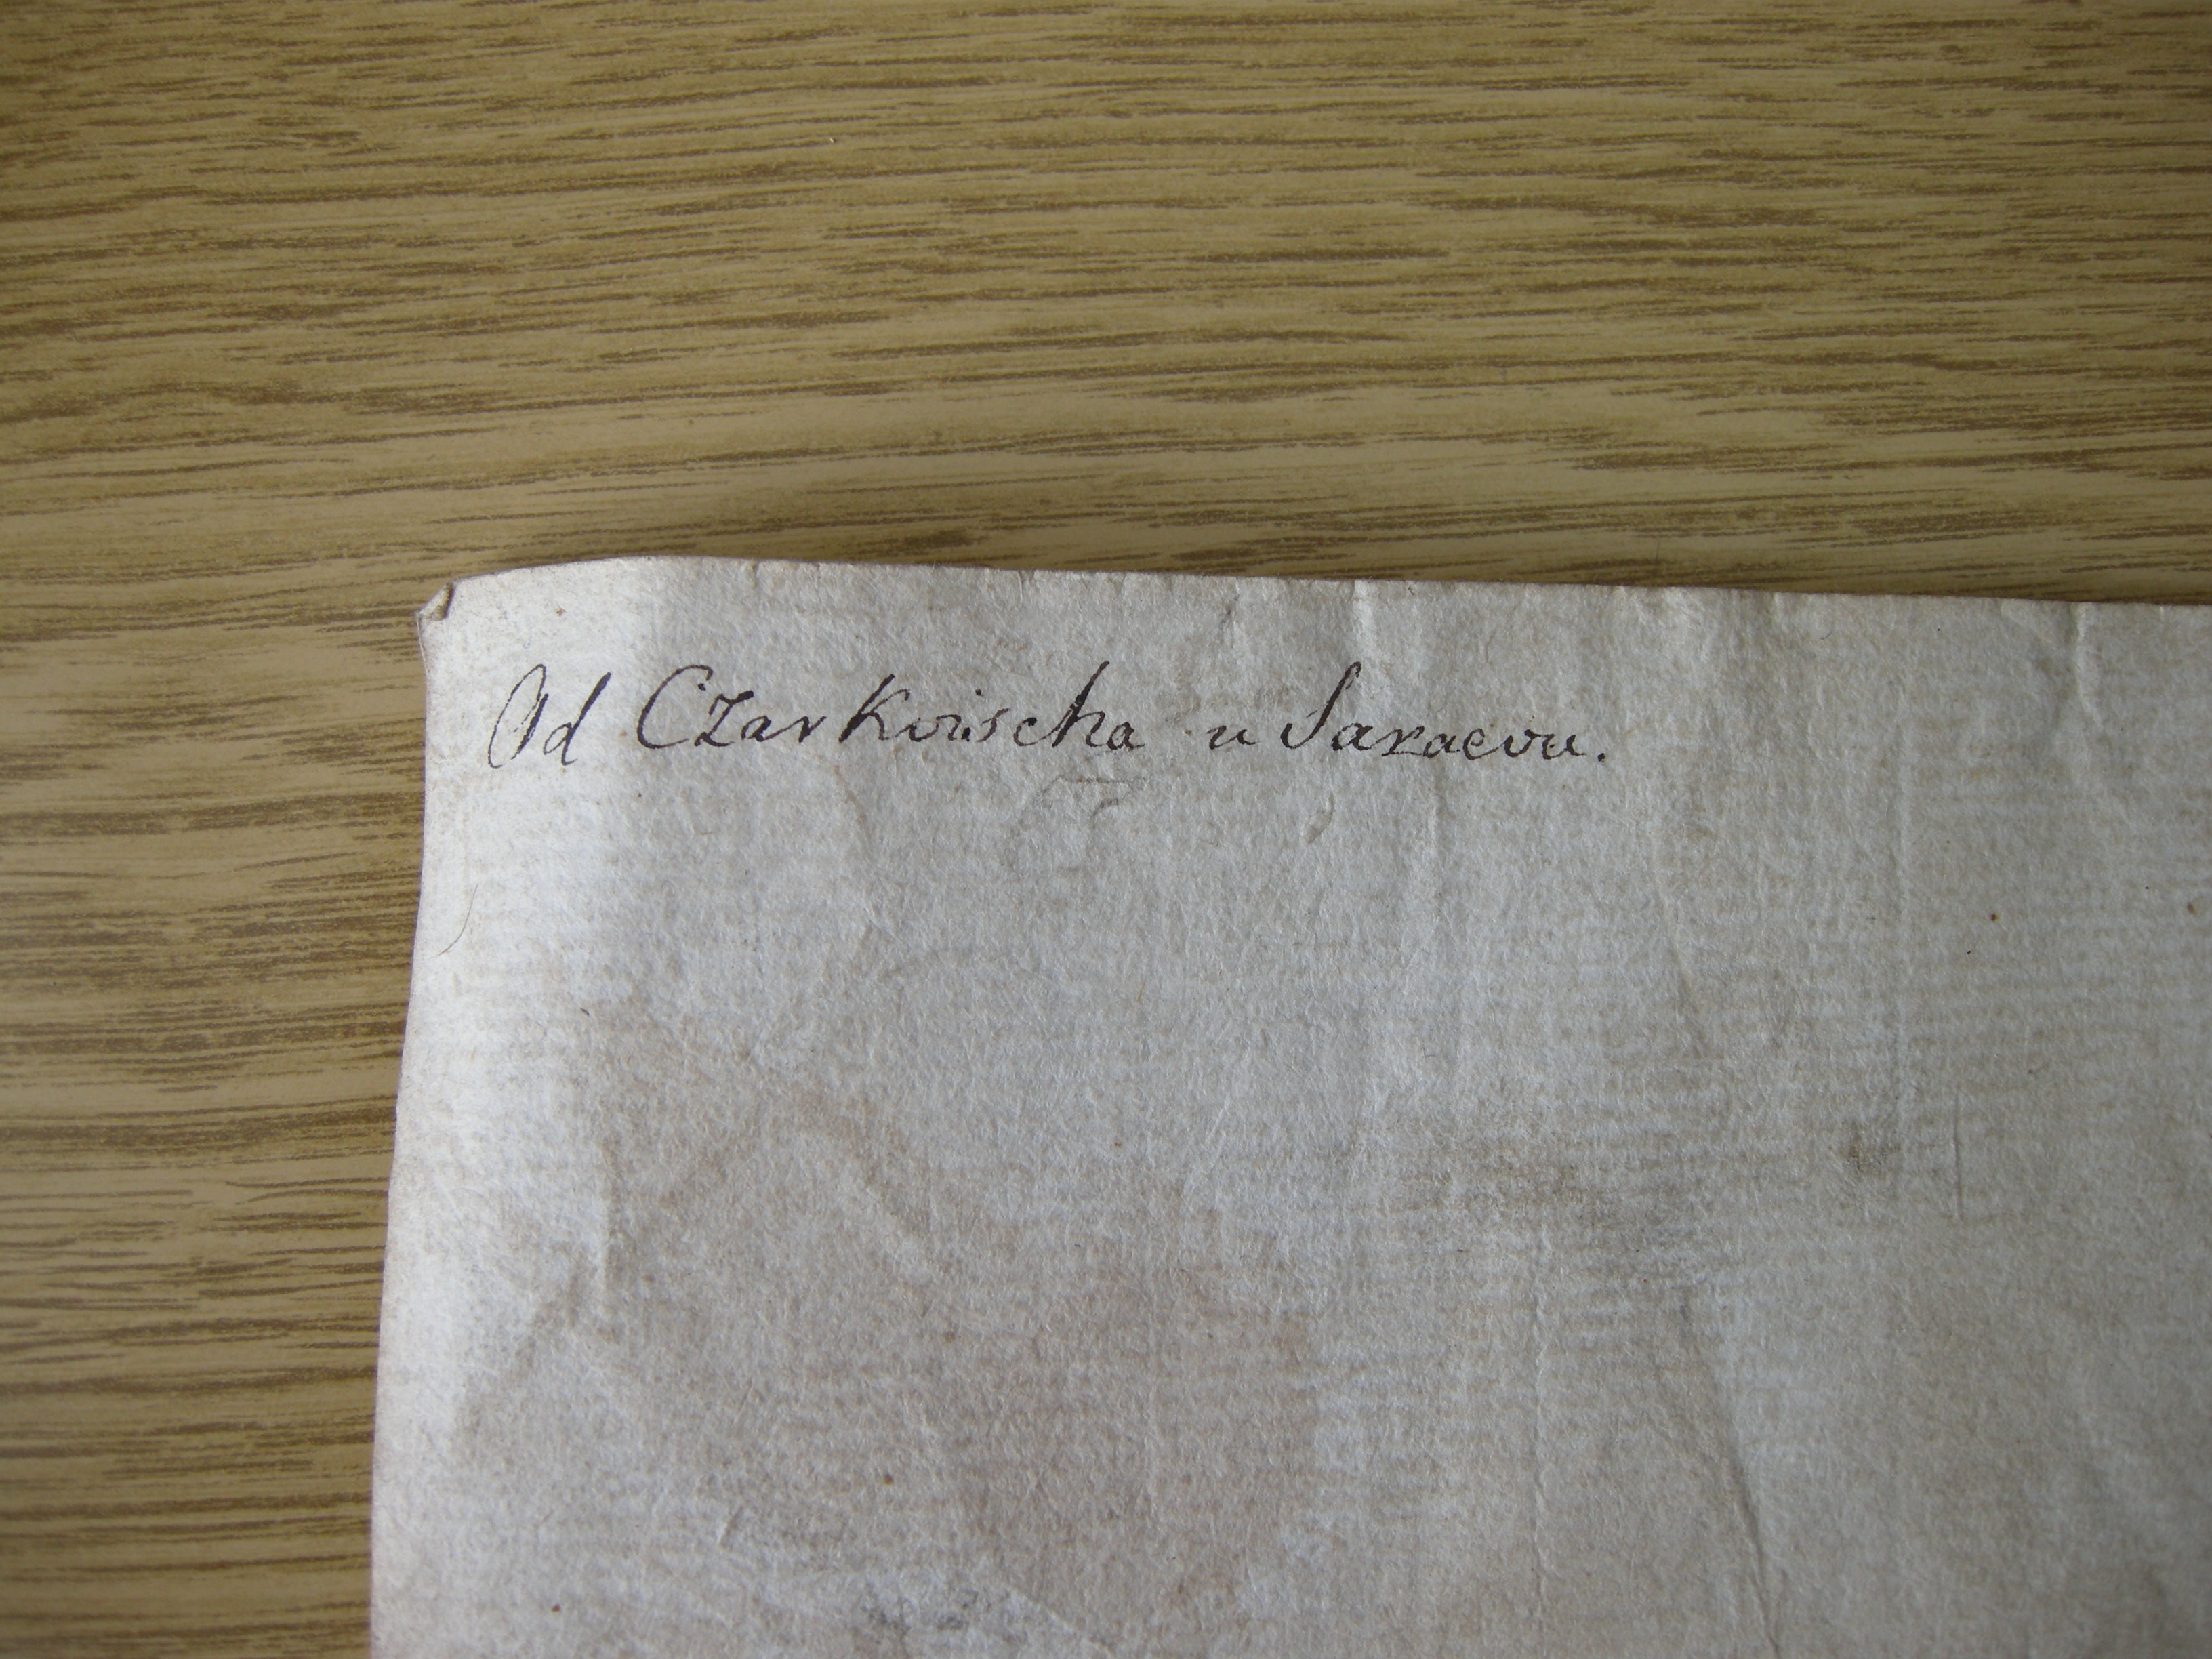 Od Czarkvischa u Saraevu.